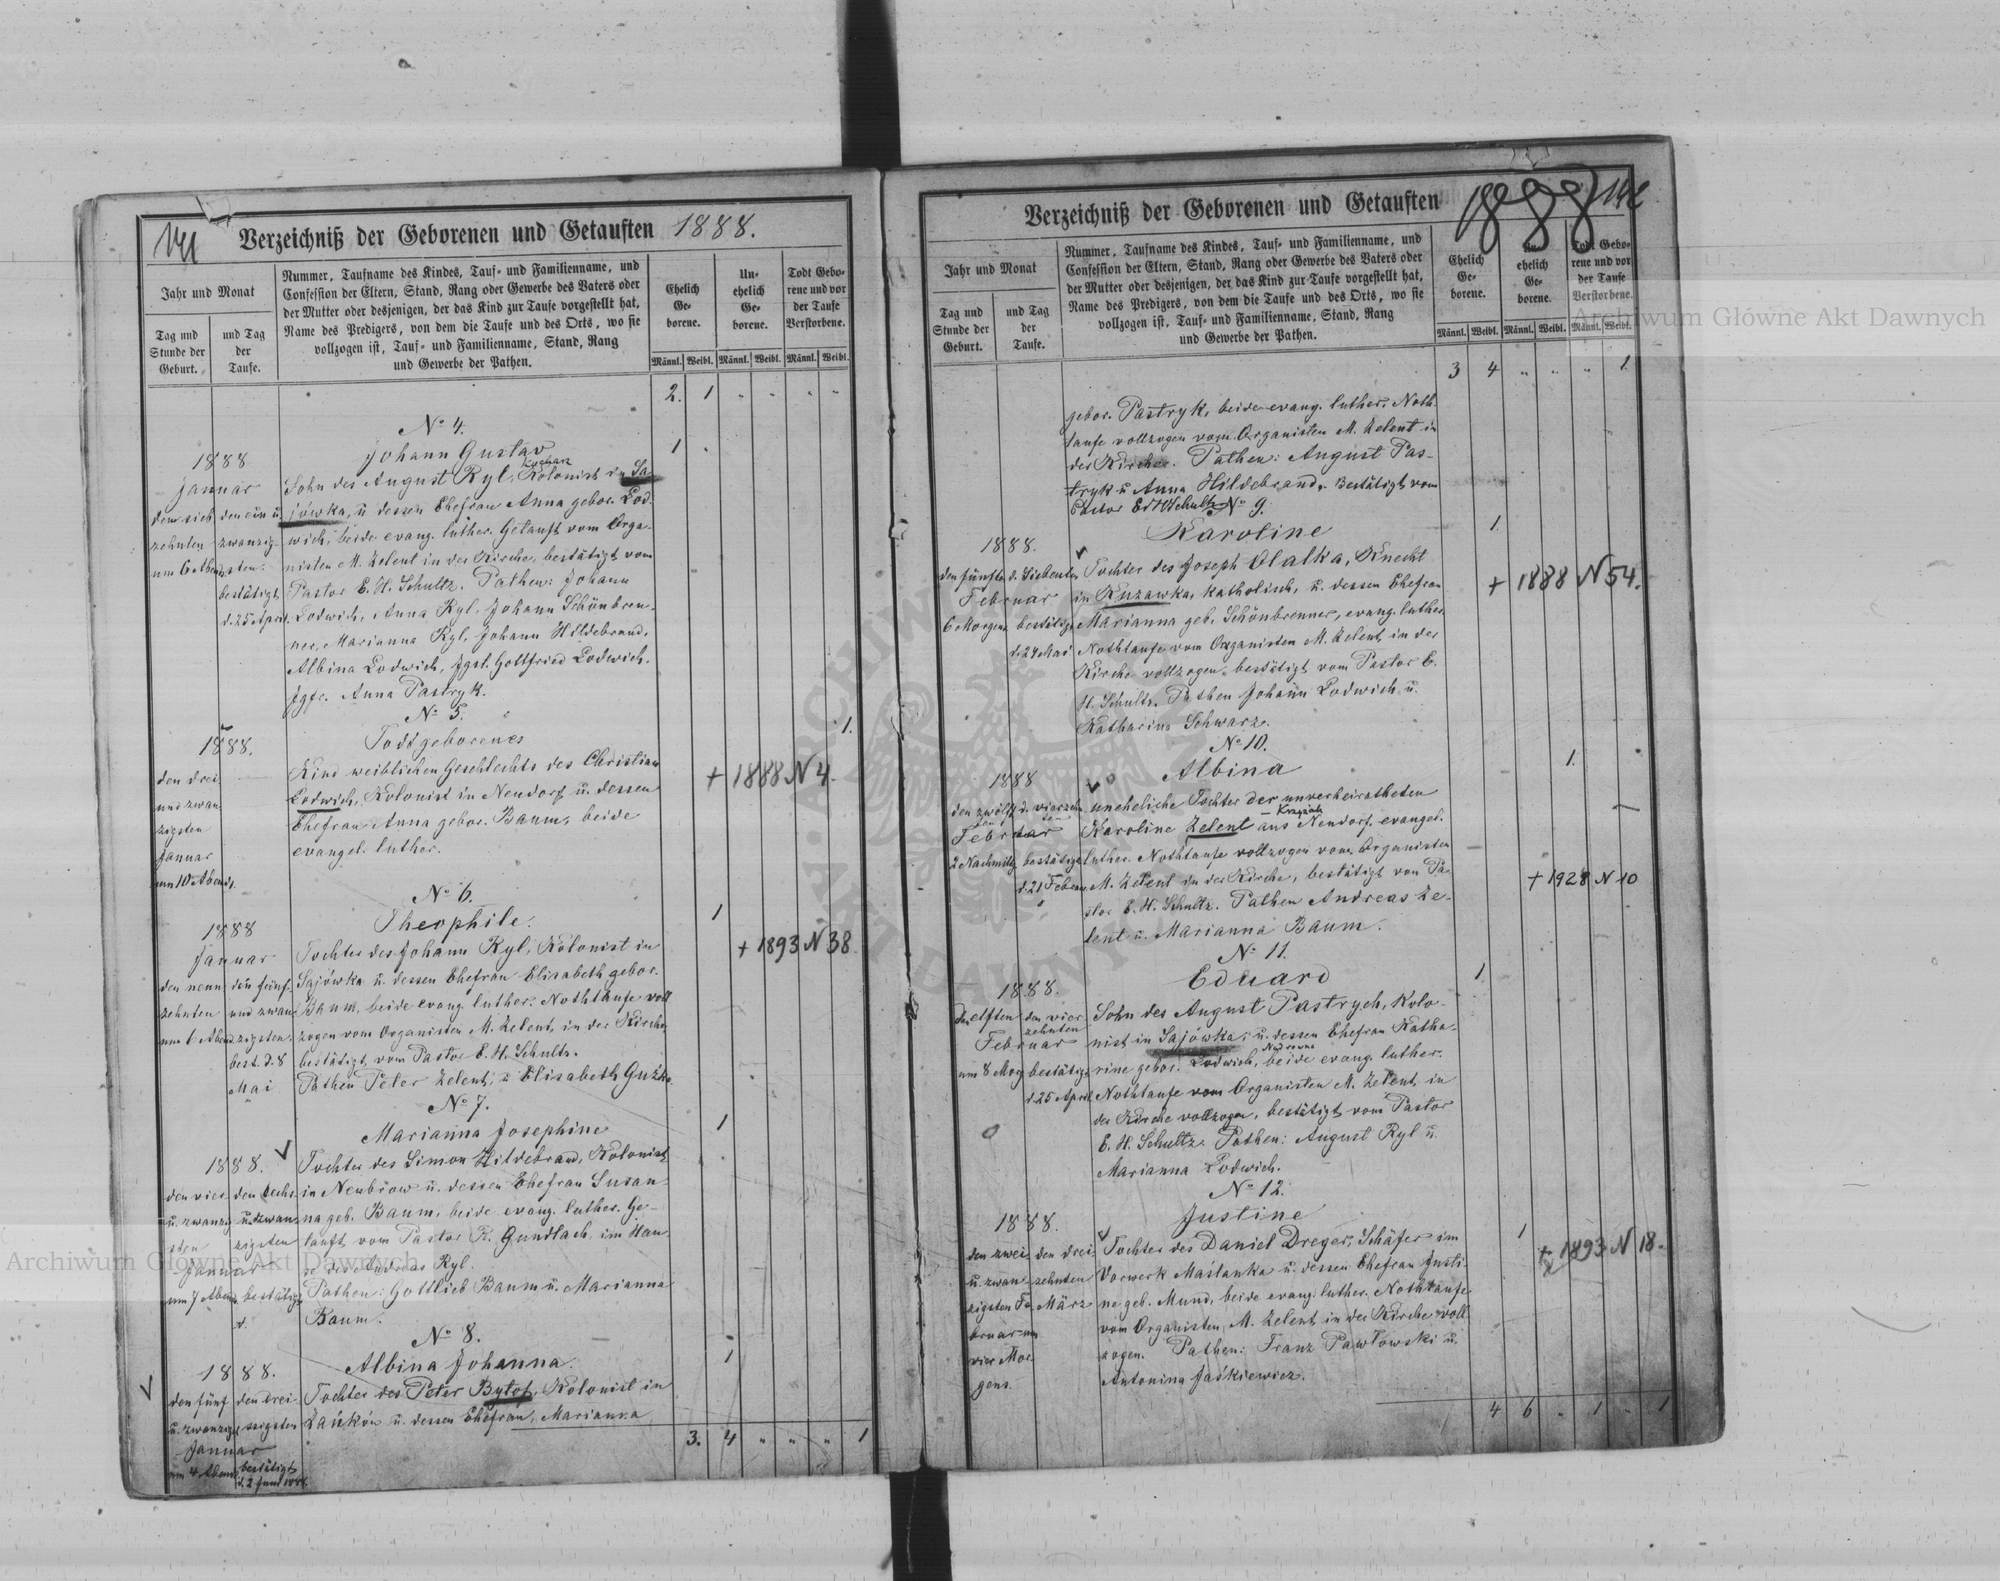 141
Verzeichniß der Geborenen und Getauften 1888.
Jahr und Monat
Tag und Stunde der Geburt.
und Tag der Taufe.
Nummer, Taufname des Kindes, Tauf- und Familienname, und
Confession der Eltern, Stand, Rang oder Gewerbe des Vaters oder
der Mutter oder desjenigen, der das Kind zur Taufe vorgestellt hat,
Name des Predigers, von dem die Taufe und des Orts, wo sie
vollzogen ist, Tauf- und Familienname, Stand, Rang
und Gewerbe der Pathen.
Ehelich Geborene.
Unehelich Geborene.
Todt Geborene und vor der Taufe Verstorbene.
Männl. Weibl. Männl. Weibl. Männl. Weibl.
2. 1 " " " "
No 4.
Johann Gustav
1
1888
Januar
den sieb
zehnten
um 6 Abends
den ein u.
zwanzig-
sten.
bestätigt
d. 25 April.
Sohn des August Ryl, Kolonist in Sa-
jówka, u dessen Ehefrau Anna gebor. Lod-
wich, beide evang. luther. Getauft vom Orga-
nisten M. Zelent in der Kirche, bestätigt vom
Pastor E. H. Schultz. Pathen: Johann
Lodwich, Anna Ryl, Johann Schönbren-
ner, Marianna Ryl, Johann Hildebrand,
Albina Lodwich, Jgsl. Gottfried Lodwich.
Jgfr. Anna Pastryk.
No 5.
Todtgeborenes
1.
1888.
den drei
und zwan
zigsten
Januar
um 10 Abends
Kind weiblichen Geschlechts des Christian
Lodwich, Kolonist in Neudorf u. dessen
Ehefrau Anna gebor. Baum, beide
evangel. luther.
+ 1888 N 4.
No 6.
Theophile.
1
1888
Januar
den neun
zehnten
um 6 Abend
den fünf-
und zwan
zigsten.
best. d. 8
Mai
Tochter des Johann Ryl, Kolonist in
Sajówka u. dessen Ehefrau Elisabeth gebor.
Baum, beide evang. luther. Nothtaufe voll
zogen vom Organisten M. Zelent, in der Kirche,
bestätigt vom Pastor E. H. Schultz.
Pathen Peter Zelent, u Elisabeth
+ 1893 N 38
No 7.
Marianna Josephine
1
1888.
den vier
u. zwanzig
sten
Januar
um 7 Abends
den sechs
u. zwan-
zigsten
bestätigt
d.
Tochter des Simon Hildebrand, Kolonist
in Neubrow u. dessen Ehefrau Susan-
na geb. Baum, beide evang. luther. Ge-
tauft vom Pastor R. Gundlach, im Hau
se des Andreas Ryl.
Pathen: Gottlieb Baum u. Marianna
Baum.
No 8.
Albina Johanna.
1
1888.
den fünf
u. zwanzig
Januar
um 4 Abend
den drei-
ssigsten
bestätigt
d. 2 Juni 1888.
Tochter des Peter Bytof, Kolonist in
u. dessen Ehefrau, Marianna
3. 4 " " " 1
1888 142
Verzeichniß der Geborenen und Getauften
Jahr und Monat
Tag und Stunde der Geburt.
und Tag der Taufe.
Nummer, Taufname des Kindes, Tauf- und Familienname, und
Confession der Eltern, Stand, Rang oder Gewerbe des Vaters oder
der Mutter oder desjenigen, der das Kind zur Taufe vorgestellt hat,
Name des Predigers, von dem die Taufe und des Orts, wo sie
vollzogen ist, Tauf- und Familienname, Stand, Rang
und Gewerbe der Pathen.
Ehelich Geborene.
Unehelich Geborene.
Todt Geborene und vor der Taufe Verstorbene.
Männl. Weibl. Männl. Weibl. Männl. Weibl.
3 4 " " " 1
gebor. Pastryk, beide evang. luther. Noth-
taufe vollzogen vom Organisten M. Zelent in
der Kirche. Pathen: August Pas-
tryk u Anna Hildebrand. Bestätigt vom
Pastor Ed H Schultz
No 9.
Karoline
1.
1888.
den fünften
Februar
6 Morgens
d. Siebenten
bestätigt
d. 24 Mai
Tochter des Joseph Olalka, Knecht
in Kuzawka, katholisch, u. dessen Ehefrau
Marianna geb. Schönbrenner, evang. luther.
Nothtaufe vom Organisten M. Zelent, in der
Kirche vollzogen, bestätigt vom Pastor E.
H. Schultz. Pathen Johann Lodwich u.
Katharina Schwarz.
+ 1888 N 54.
No 10.
Albina
1.
1888
den zwölf
ten
Februar
2 Nachmittg
d. vierzehn
ten
bestätigt
d. 21 Februar
uneheliche Tochter der unverheiratheten
Karoline Zelent aus Neudorf, evangel.
luther. Nothtaufe vollzogen vom Organisten
M. Zelent in der Kirche, bestätigt von Pa-
stor E. H. Schultz. Pathen Andreas Ze-
lent u. Marianna Baum.
+ 1928 N 10
No 11.
Eduard
1
1888.
den elften
Februar
um 8 Mog
den vier
zehnten
bestätigt
d. 25 April
Sohn des August Pastrych, Kolo-
nist in Sajówka, u. dessen Ehefrau Katha-
rine gebor. Lodwich, beide evang. luther.
Nothtaufe vom Organisten M. Zelent in
der Kirche vollzogen, bestätigt vom Pastor
E. H. Schultz. Pathen: August Ryl u.
Marianna Lodwich.
No 12.
Justine
1
1888.
den zwei
u. zwan
zigsten Fe
bruar um
vier Mor
gens.
den drei-
zehnten
März
Tochter des Daniel Dreger, Schäfer im
Vorwerk Maślanka u. dessen Ehefrau Justi-
ne geb. Mund, beide evang. luther. Nothtaufe
vom Organisten M. Zelent in der Kirche voll
zogen. Pathen: Franz Pawłowski u.
Antonina Jaśkiewicz.
+ 1893 N 18.
4 6 " 1 " 1
Archiwum Główne Akt Dawnych
Archiwum Główne Akt Dawnych